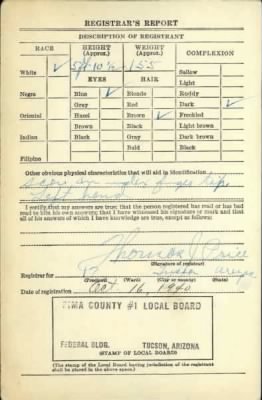 REGISTRAR'S REPORT
DESCRIPTION OF REGISTRANT
RACE
HEIGHT (Approx.)
WEIGHT (Approx.)
COMPLEXION
White ✓
5ft 10½
155
Sallow
EYES
HAIR
Light
Negro
Blue ✓
Blonde
Ruddy
Gray
Red
Dark ✓
Oriental
Hazel
Brown ✓
Freckled
Brown
Black
Light brown
Indian
Black
Gray
Dark brown
Bald
Black
Filipino
Other obvious physical characteristics that will aid in identification
scar on finger tip
left hand
I certify that my answers are true; that the person registered has read or has had
read to him his own answers; that I have witnessed his signature or mark and that
all of his answers of which I have knowledge are true, except as follows:
Thomas J Price
(Signature of registrar)
Registrar for
Tucson
(Precinct) (Ward) (City or county)
Date of registration Oct 16, 1940
PIMA COUNTY #1 LOCAL BOARD
FEDERAL BLDG. TUCSON, ARIZONA
(STAMP OF LOCAL BOARD)
(The stamp of the Local Board having jurisdiction of the registrant
shall be placed in the above space.)